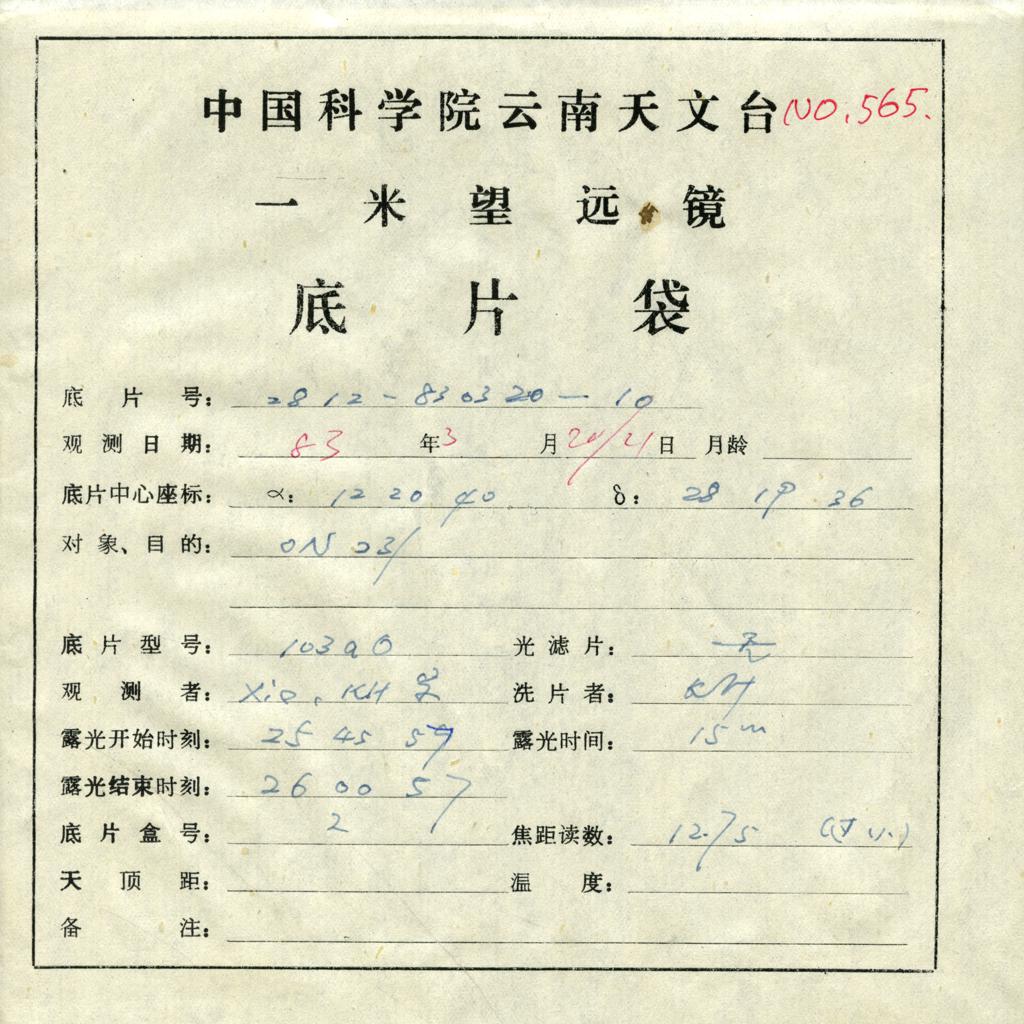 中国科学院云南天文台 NO.565.
一米望远镜
底片袋
底片号: 2812-830320-10
观测日期: 83年3月20/21日 月龄
底片中心座标: α: 12 20 40 δ: 28 19 36
对象、目的: ON 231
底片型号: 103aO 光滤片: 无
观测者: Xie, KH 洗片者: KH
露光开始时刻: 25 45 57 露光时间: 15m
露光结束时刻: 26 00 57
底片盒号: 2 焦距读数: 12.75
天顶距: 温度:
备注: